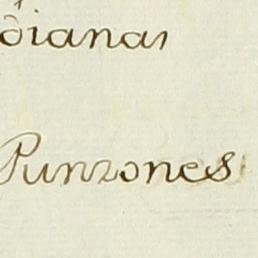 dianas
Punzones